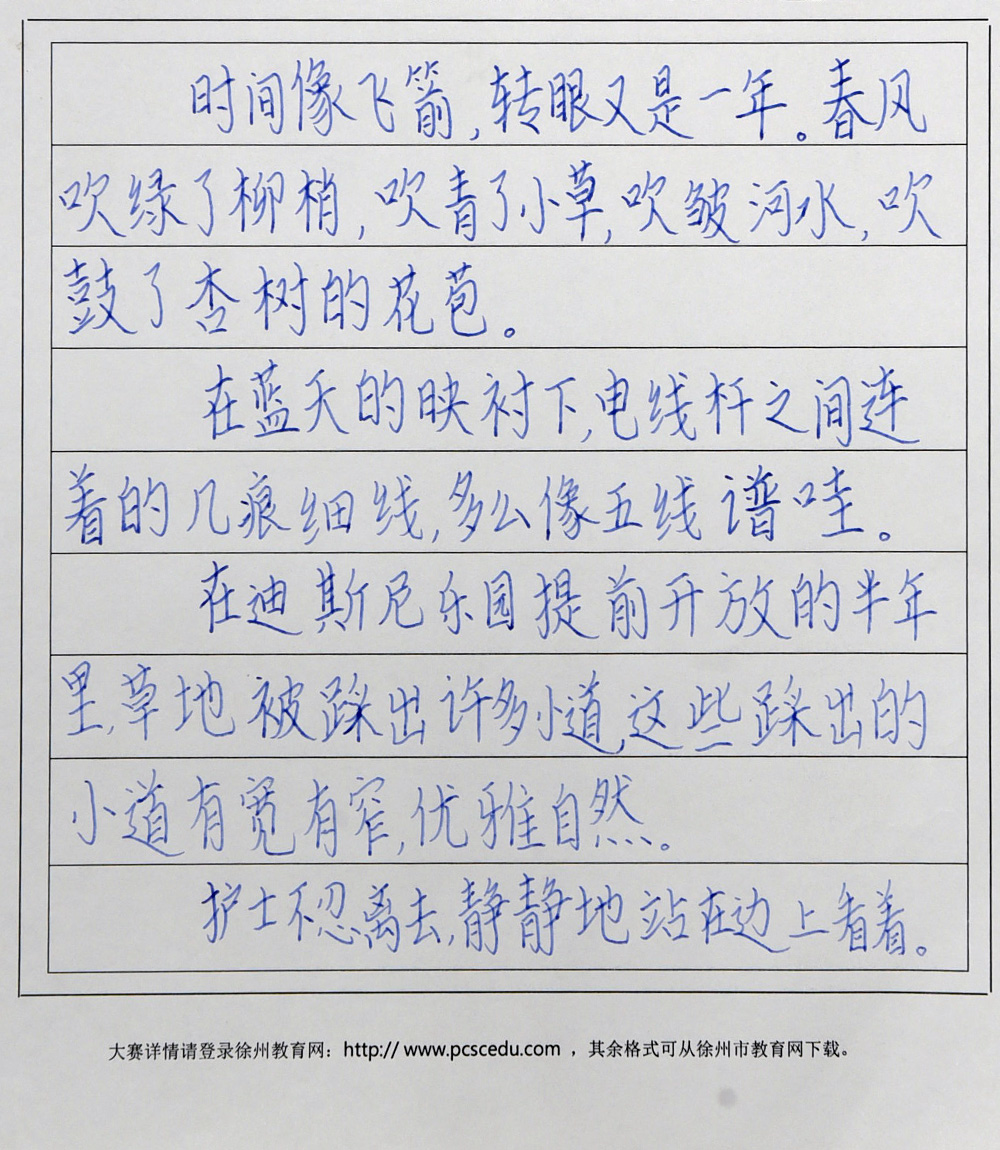 时间像飞箭,转眼又是一年。春风
吹绿了柳梢,吹青了小草,吹皱河水,吹
鼓了杏树的花苞。
在蓝天的映衬下,电线杆之间连
着的几痕细线,多么像五线谱哇。
在迪斯尼乐园提前开放的半年
里,草地被踩出许多小道,这些踩出的
小道有宽有窄,优雅自然。
护士不忍离去,静静地站在边上看着。
大赛详情请登录徐州教育网:http:// www.pcscedu.com ,其余格式可从徐州市教育网下载。